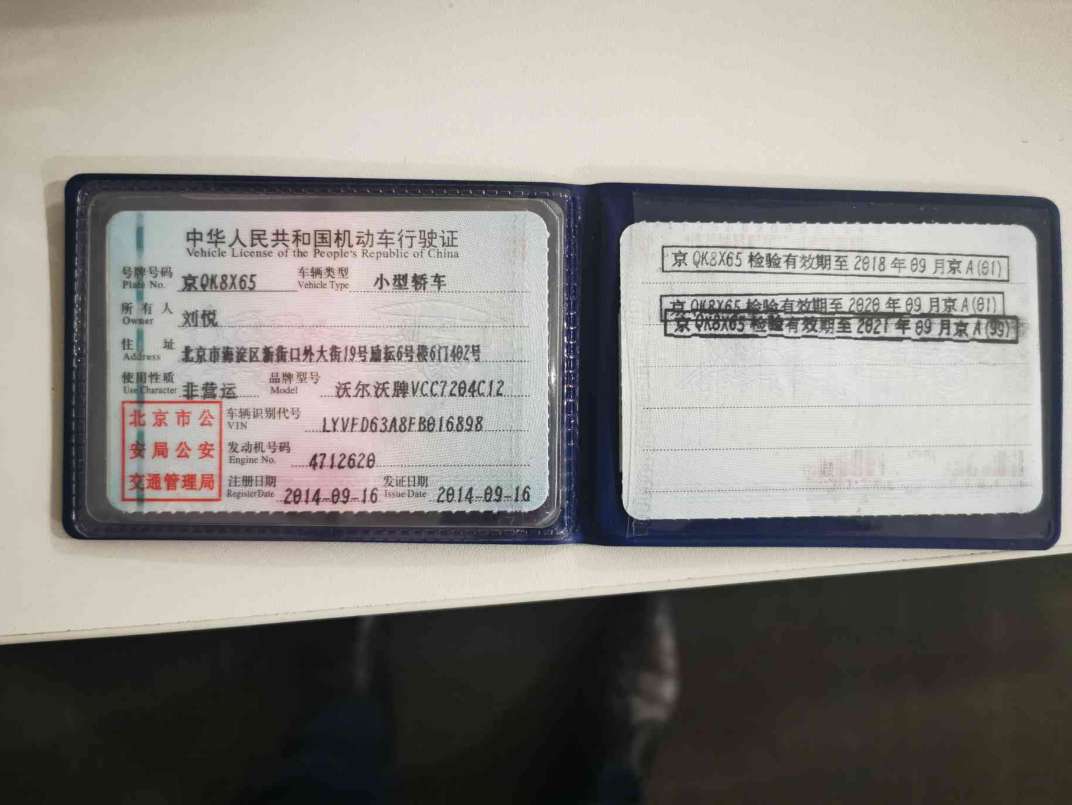 中华人民共和国机动车行驶证
Vehicle License of the People's Republic of China
号牌号码 京QK8X65 车辆类型 小型轿车
Plate No. Vehicle Type
所有人 刘悦
Owner
住址 北京市海淀区新街口外大街19号励耘6号楼6门402号
Address
使用性质 非营运 品牌型号 沃尔沃牌VCC7204C12
Use Character Model
北京市公安局公安交通管理局
车辆识别代号 LYVFD63A8FB016898
VIN
发动机号码 4712620
Engine No.
注册日期 2014-09-16 发证日期 2014-09-16
Register Date Issue Date
京QK8X65检验有效期至2018年09月京A(01)
京QK8X65检验有效期至2020年09月京A(01)
京QK8X65检验有效期至2021年09月京A(99)